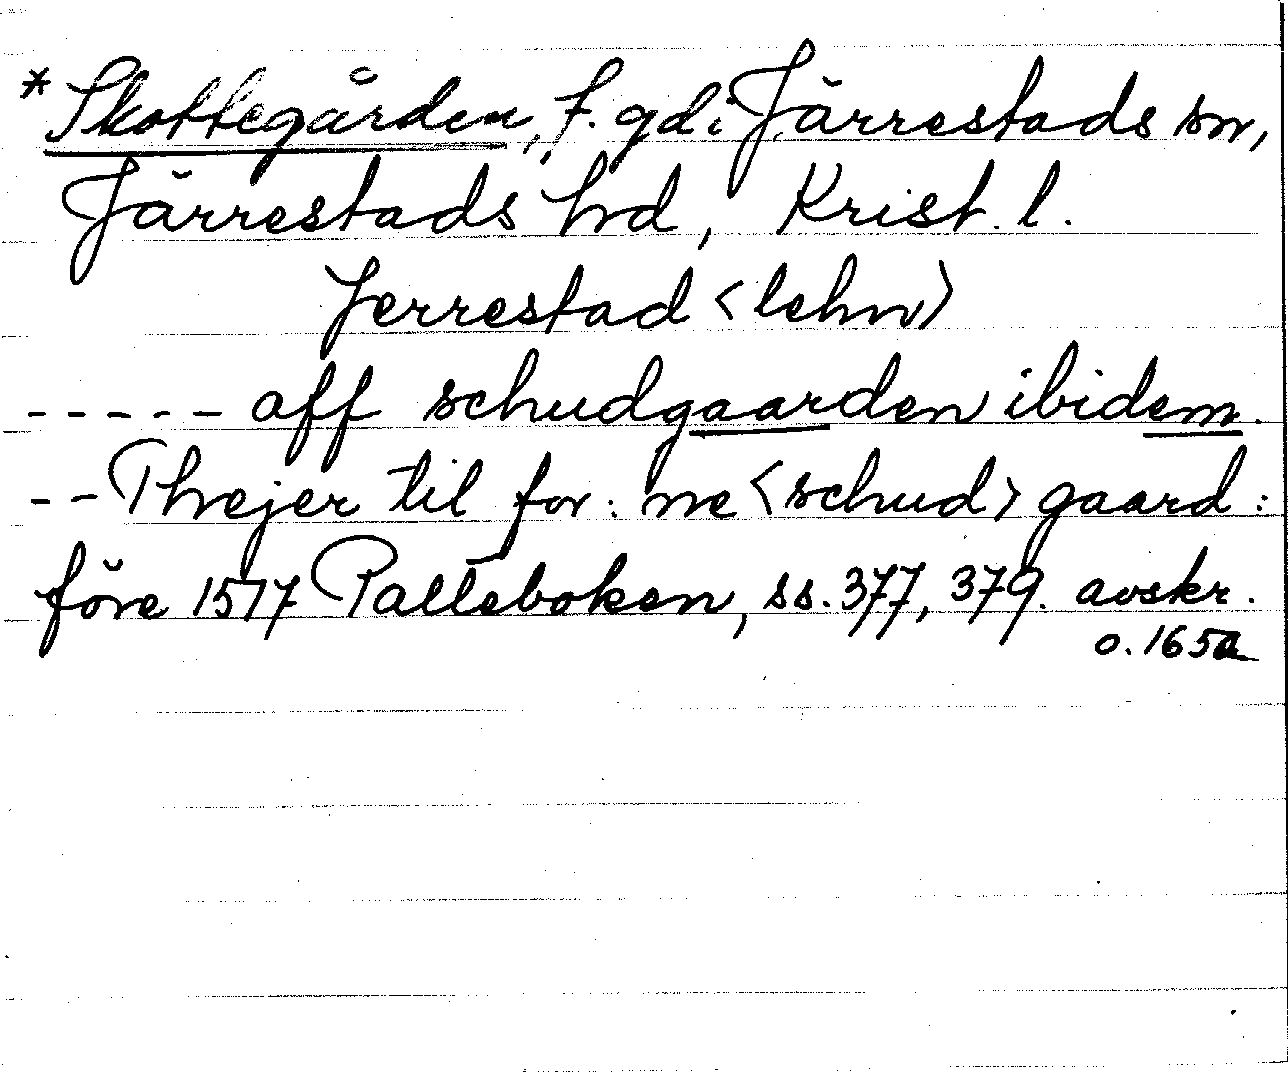 *Skottegården, f. gd i Järrestads sn,
Järrestads hd, Krist. l.
Jerrestad <lehn>
----- aff schudgaarden ibidem.
-- Threjer til for: ne <schud> gaard:
före 1517 Palteboken, ss. 377, 379. avskr.
o. 1650